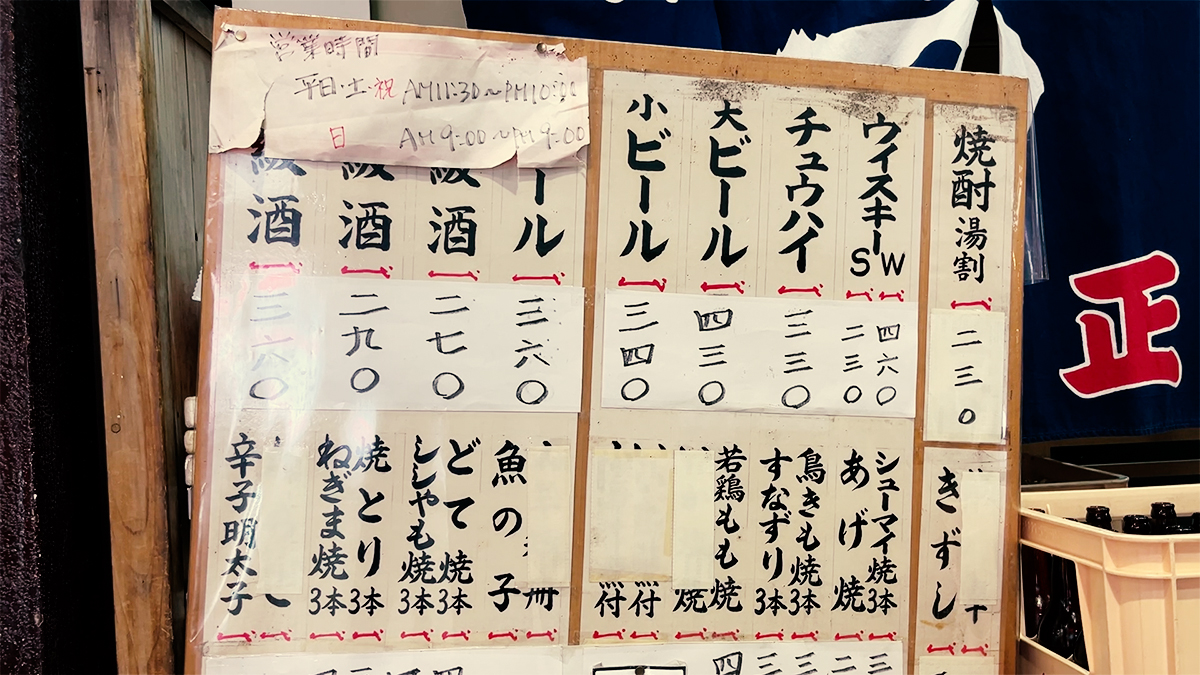 営業時間
平日・土・祝 AM11:30～PM10:00
日 AM9:00～PM9:00
焼酎湯割
二三〇
ウイスキーSW
四六〇
二三〇
チュウハイ
三三〇
大ビール
四三〇
小ビール
三四〇
ール
三六〇
級酒
二七〇
級酒
二九〇
級酒
三六〇
きずし
シューマイ焼3本
あげ焼
鳥きも焼3本
すなずり3本
若鶏もも焼
焼
付
付
魚の子
どて焼3本
ししゃも焼3本
焼とり3本
ねぎま焼3本
し
辛子明太子
正